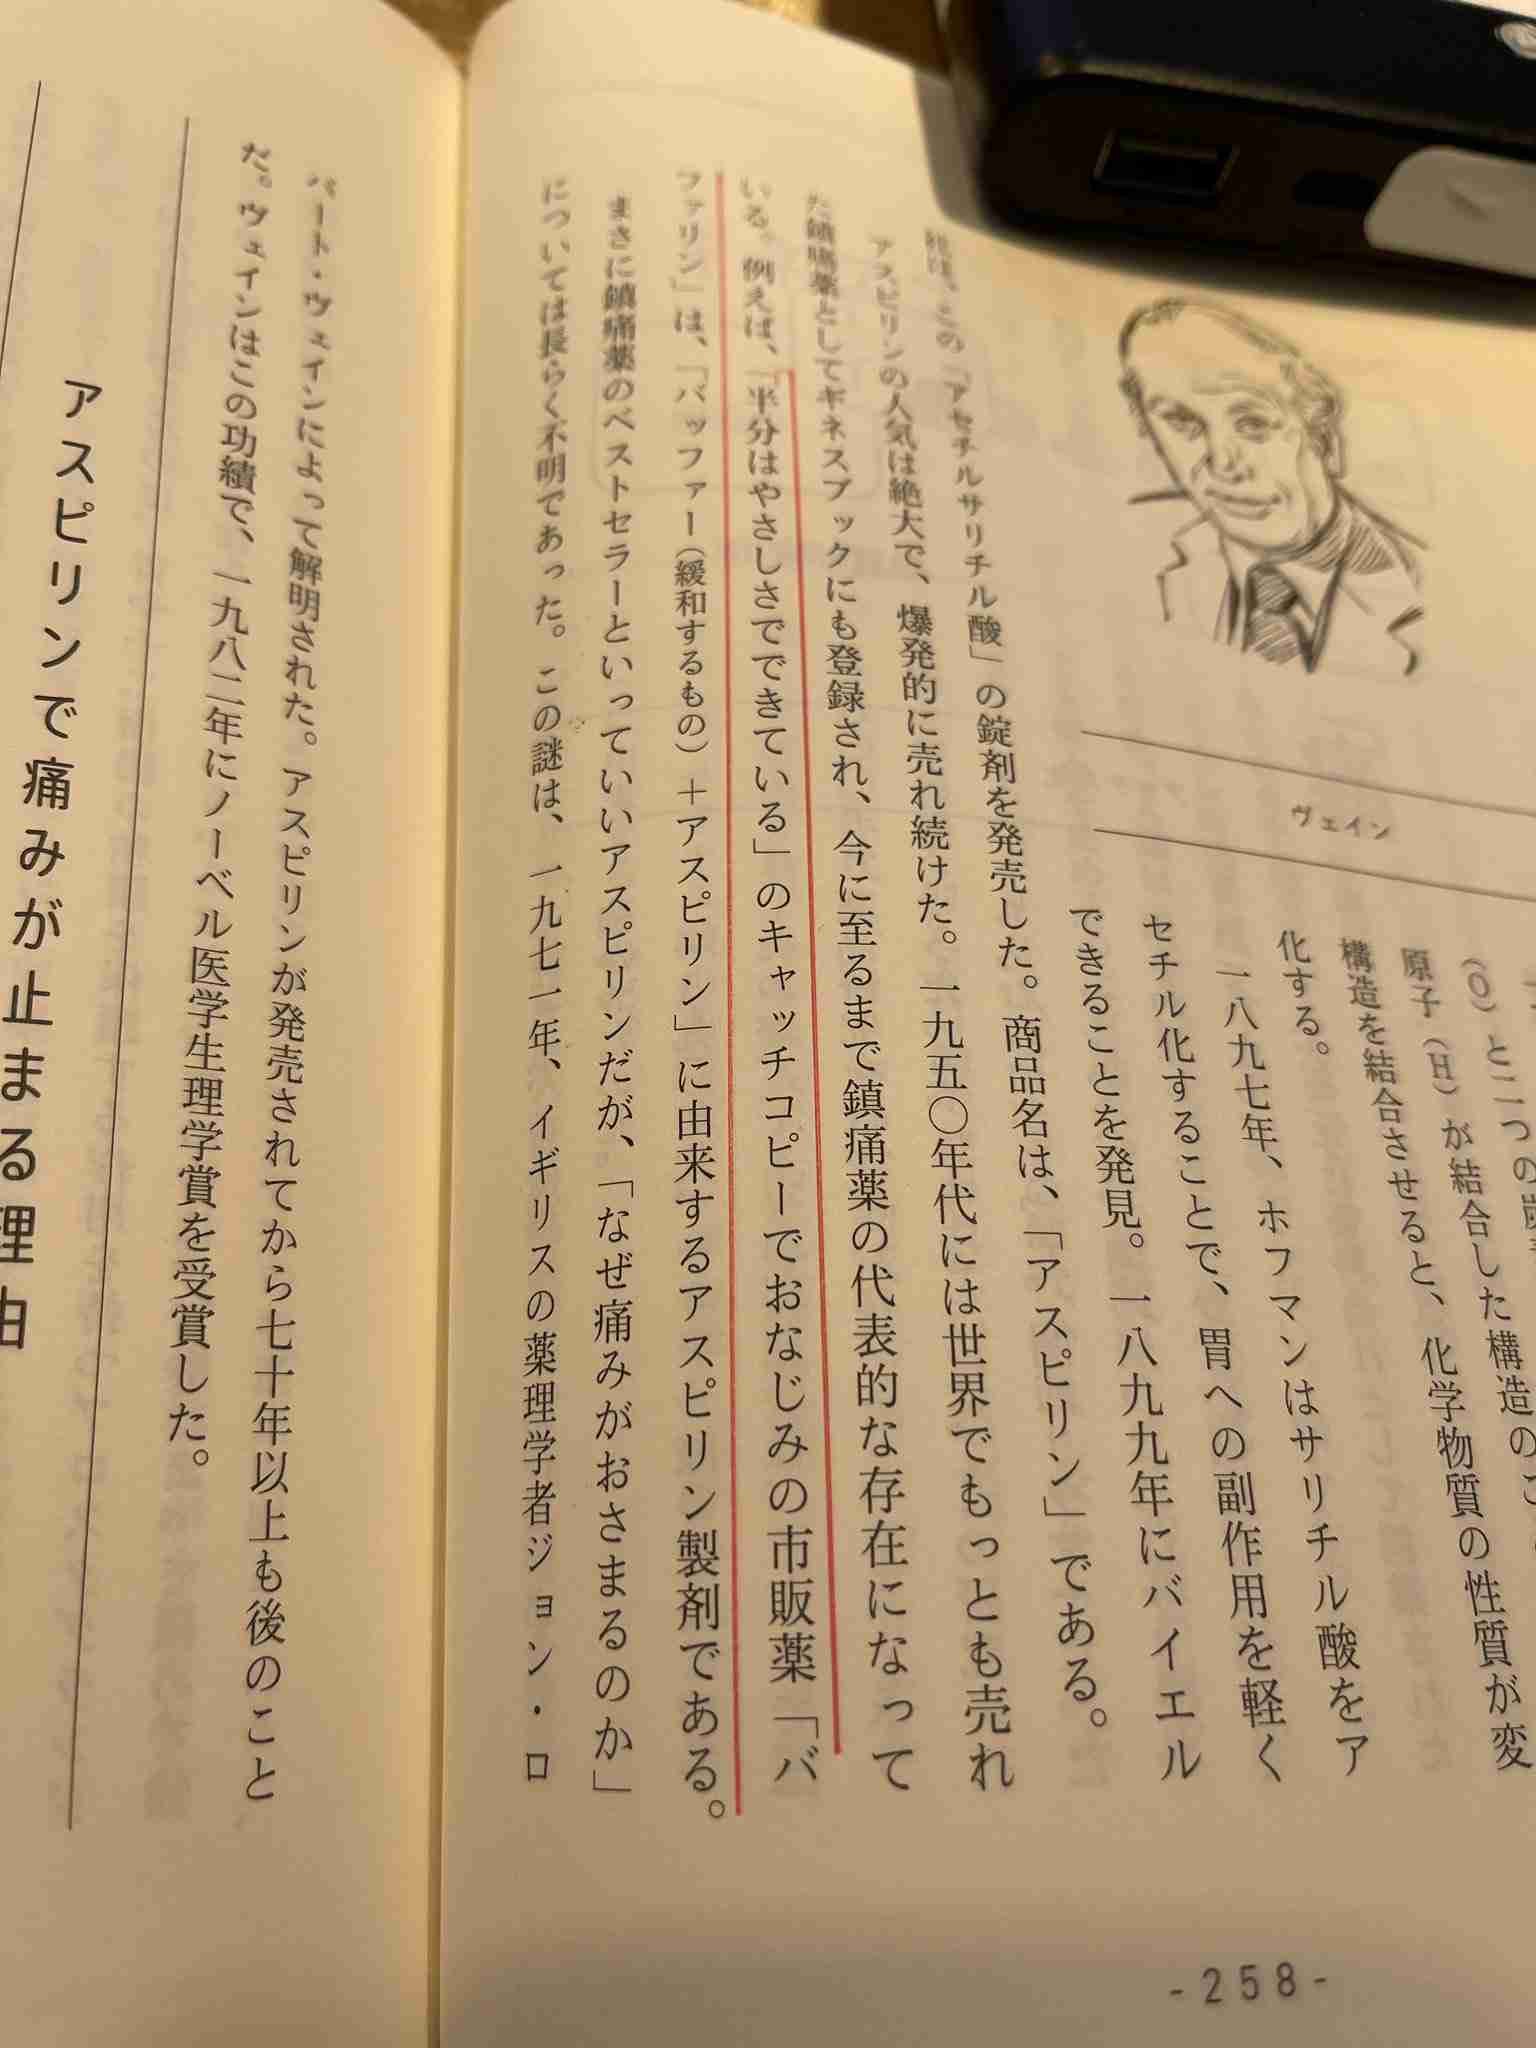 ヴェイン
(O)と二つの
原子(H)が結合した構造の
構造を結合させると、化学物質の性質が変
化する。
一八九七年、ホフマンはサリチル酸をア
セチル化することで、胃への副作用を軽く
できることを発見。一八九九年にバイエル
この「アセチルサリチル酸」の錠剤を発売した。商品名は、「アスピリン」である。
アスピリンの人気は絶大で、爆発的に売れ続けた。一九五〇年代には世界でもっとも売れ
た鎮痛薬としてギネスブックにも登録され、今に至るまで鎮痛薬の代表的な存在になって
いる。例えば、「半分はやさしさでできている」のキャッチコピーでおなじみの市販薬「バ
ファリン」は、「バッファー(緩和するもの)+アスピリン」に由来するアスピリン製剤である。
まさに鎮痛薬のベストセラーといっていいアスピリンだが、「なぜ痛みがおさまるのか」
については長らく不明であった。この謎は、一九七一年、イギリスの薬理学者ジョン・ロ
-258-
バート・ヴェインによって解明された。アスピリンが発売されてから七十年以上も後のこと
だ。ヴェインはこの功績で、一九八二年にノーベル医学生理学賞を受賞した。
アスピリンで痛みが止まる理由